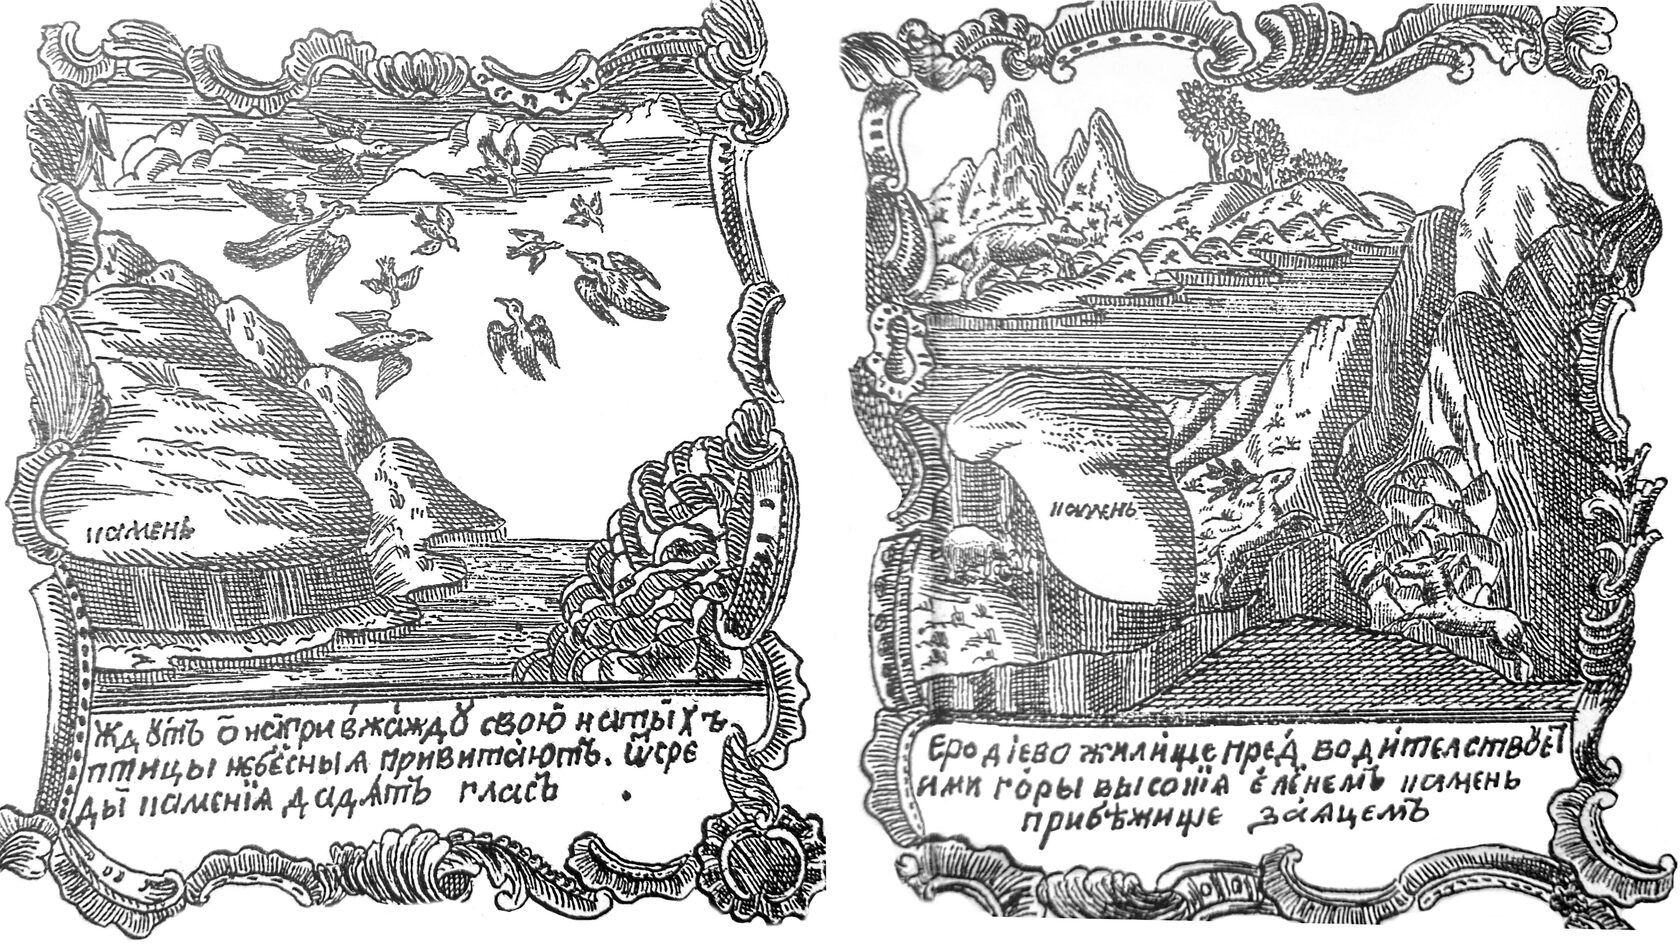 камень
ЖдУтъ о́нагри в жа́ждУ свою́ на ты́хъ
птицы небе́сныѧ привита́ютъ. Ѿ сре
ды́ ка́менїѧ дадѧ́тъ гла́съ
камень
Еродіево жили́ще пред̾ води́телствУетъ
ими го́ры высо́кїѧ еле́немъ камень
прибѣжище за́ѧцемъ